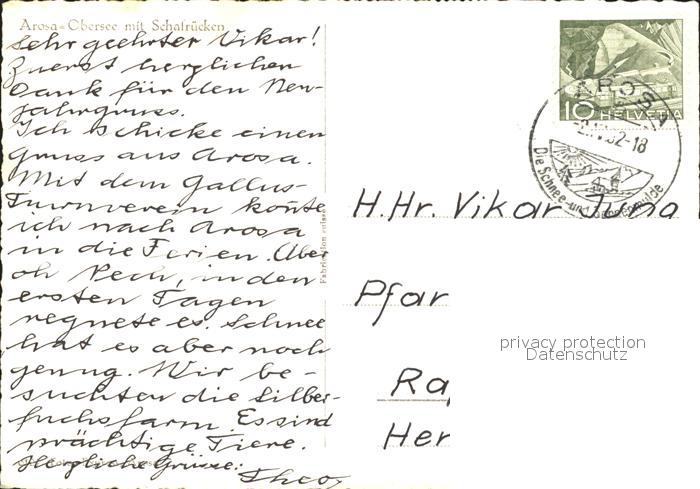 Arosa-Obersee mit Schafrücken
Sehr geehrter Vikar!
Zuerst herzlichen
Dank für den Neu-
jahrgruss.
Ich schicke einen
Gruss aus Arosa.
Mit dem Gallus-
Turnverein konte
ich nach Arosa
in die Ferien. Aber
oh Pech, in den
ersten Tagen
regnete es. Schnee
hat es aber noch
genug. Wir be-
suchten die Silber-
fuchsfarm. Es sind
prächtige Tiere.
Herzliche Grüsse:
Theo
10 HELVETIA
AROSA
52-18
Die Schnee- und Sonnenmulde
H.Hr. Vikar Jung
Pfar
Ra
Her
privacy protection
Datenschutz